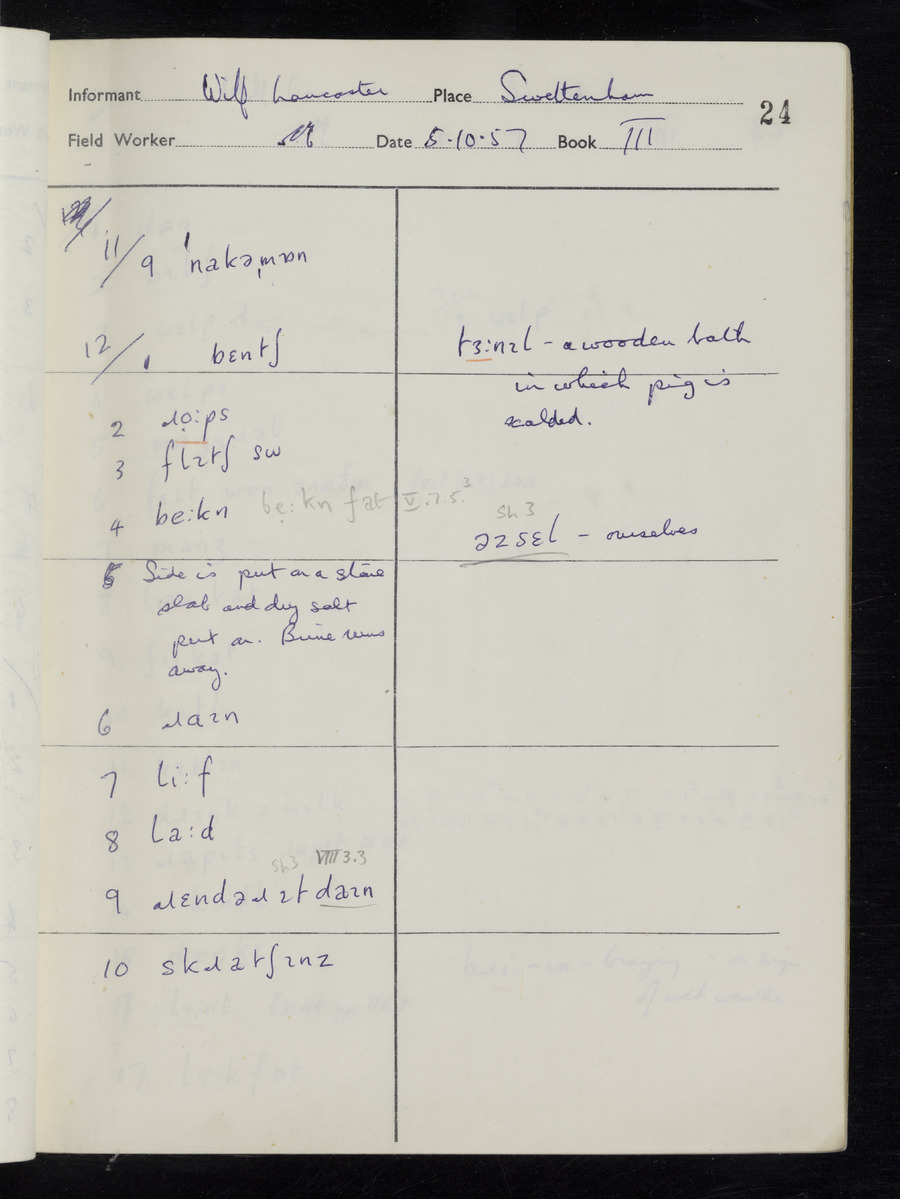 Informant Wilf Lancaster Place Swettenham
24
Field Worker Date 5.10.57 Book III
11/9 ˈnakəˌmɒn
12/1 bɛntʃ
2 ɹo̜ːps
3 flɪtʃ sw
4 beːkn be̜ːkn fat V.7.5.³
5 Side is put on a stone
slab and dry salt
put on. Brine runs
away.
6 ɹaɪn
7 liːf
8 laːd
Sh3 VIII 3.3
9 ɹɛndəɹ ɪt daɪn
10 skɹatʃɪnz
tɜːnɪl - a wooden bath
in which pig is
scalded.
Sh 3
əzsɛl - ourselves